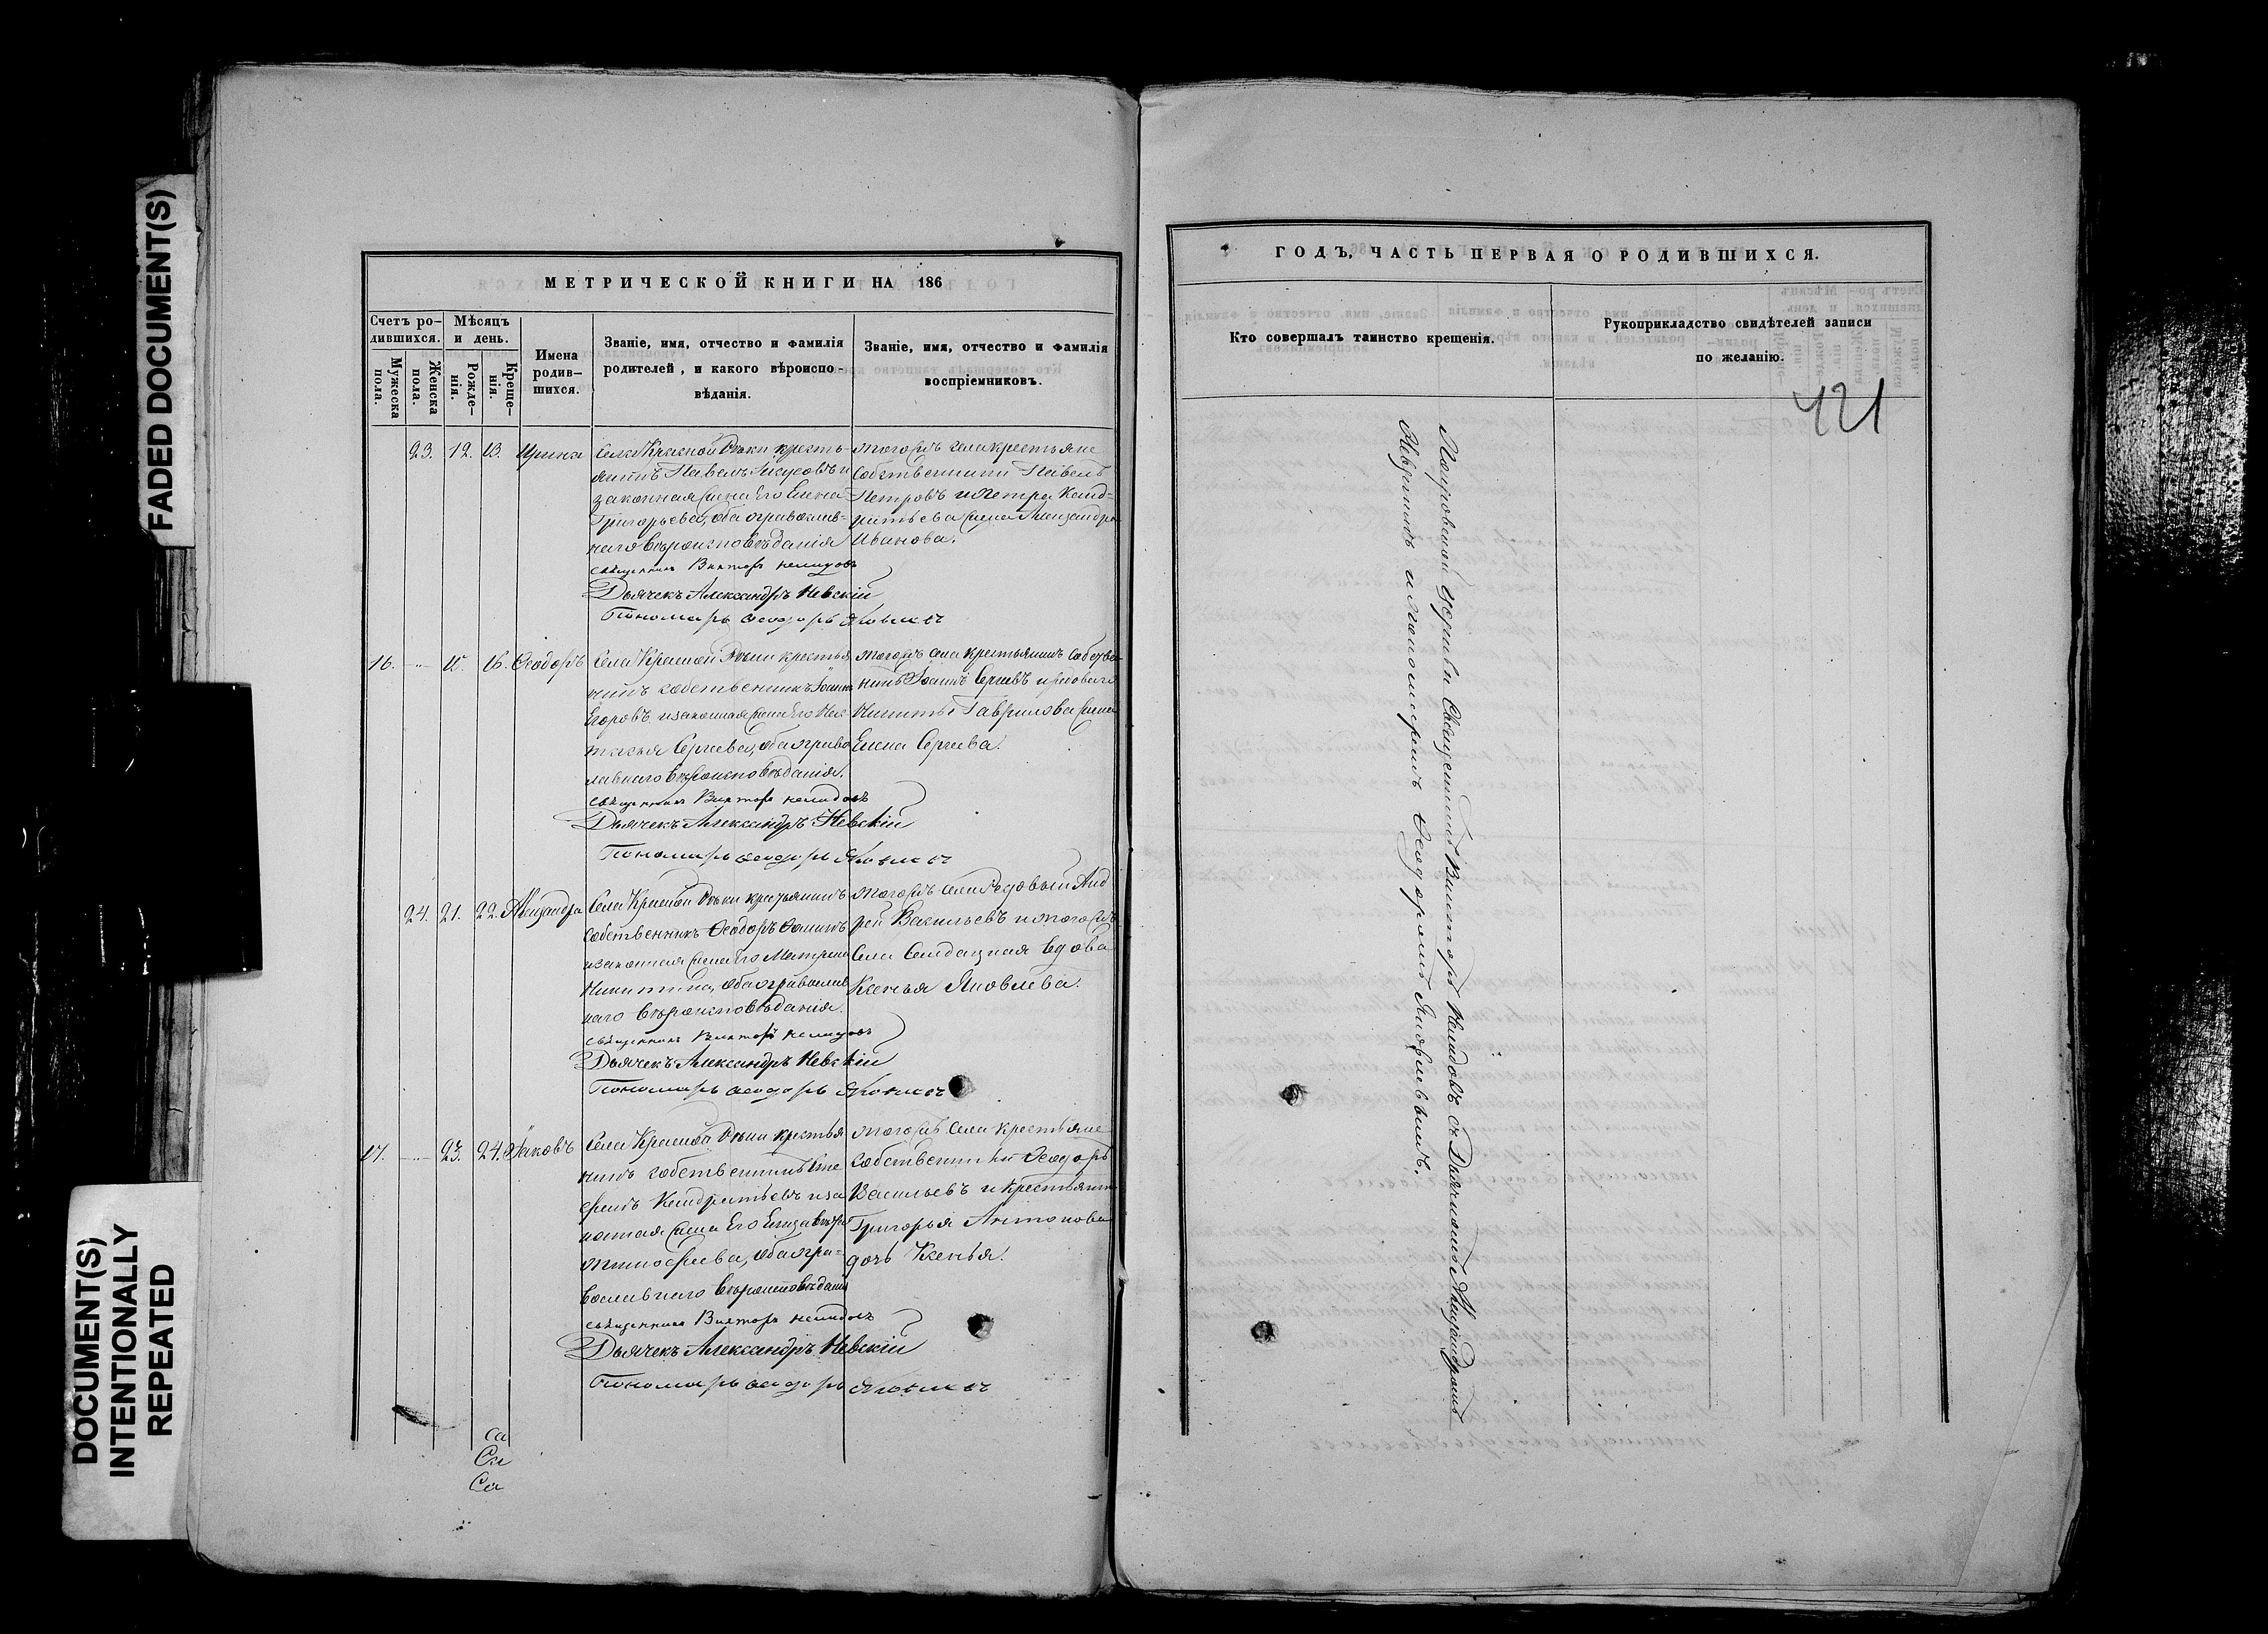 FADED DOCUMENT(S)
DOCUMENT(S)
INTENTIONALLY
REPEATED
МЕТРИЧЕСКОЙ КНИГИ НА 186
Счетъ ро-
дившихся.
Мѣсяцъ
и день.
Мужеска
пола.
Женска
пола.
Рожде-
нія.
Креще-
нія.
Имена
родив-
шихся.
Званіе, имя, отчество и фамилія
родителей, и какого вѣроиспо-
вѣданія.
Званіе, имя, отчество и фамилія
воспріемниковъ.
23. 12. 13. Ирина
Села Красной Рѣки кресть-
янинъ Павелъ и
законная жена Его Елена
Григорьева, оба православ-
наго вѣроисповѣданія
священникъ Викторъ Нелидовъ
Дьячекъ Александръ Невскій
Пономарь Ѳеодоръ Яковлевъ
тогожъ села крестьяне
собственники Павелъ
Петровъ и Петра Конд-
ратьева жена Александра
Иванова.
16. 15. 16. Ѳеодоръ
Села Красной Рѣки крестья
нинъ собственникъ Іоаннъ
Егоровъ и законная жена Его На
талья Сергеева, оба право
лавнаго вѣроисповѣданія.
священникъ Викторъ Нелидовъ
Дьячекъ Александръ Невскій
Пономарь Ѳеодоръ Яковлевъ
тогожъ села крестьянинъ собствен-
никъ Іоаннъ Сергеевъ и рядоваго
Никиты Гаврилова жена
Елена Сергеева.
24. 21. 22. Александра
Села Красной Рѣки крестьянинъ
собственникъ Ѳеодоръ Ѳоминъ
и законная жена Его Матрена
Никитина, оба православ
наго вѣроисповѣданія.
священникъ Викторъ Нелидовъ
Дьячекъ Александръ Невскій
Пономарь Ѳеодоръ Яковлевъ
тогожъ села Рядовый Анд
рей Васильевъ и тогожъ
села Солдацкая вдова
Ксенья Яковлева.
17. 23. 24. Іаковъ
Села Красной Рѣки крестья
нинъ собственникъ
Кондратьевъ и за
конная жена Его Елизавета
Тимофеева, оба пра-
вославнаго вѣроисповѣданія
священникъ Викторъ Нелидовъ
Дьячекъ Александръ Невскій
Пономарь Ѳеодоръ Яковлевъ
тогожъ села крестьяне
собственники Ѳеодоръ
Васильевъ и крестьянина
Григорья Антонова
дочь Ксенья.
Са
Са
ГОДЪ, ЧАСТЬ ПЕРВАЯ О РОДИВШИХСЯ.
Кто совершалъ таинство крещенія.
Рукоприкладство свидѣтелей записи
по желанію.
421
Покровской Церкви Священникъ Викторъ Нелидовъ съ Дьячкомъ Александромъ
Невскимъ и пономаремъ Ѳеодоромъ Яковлевымъ.